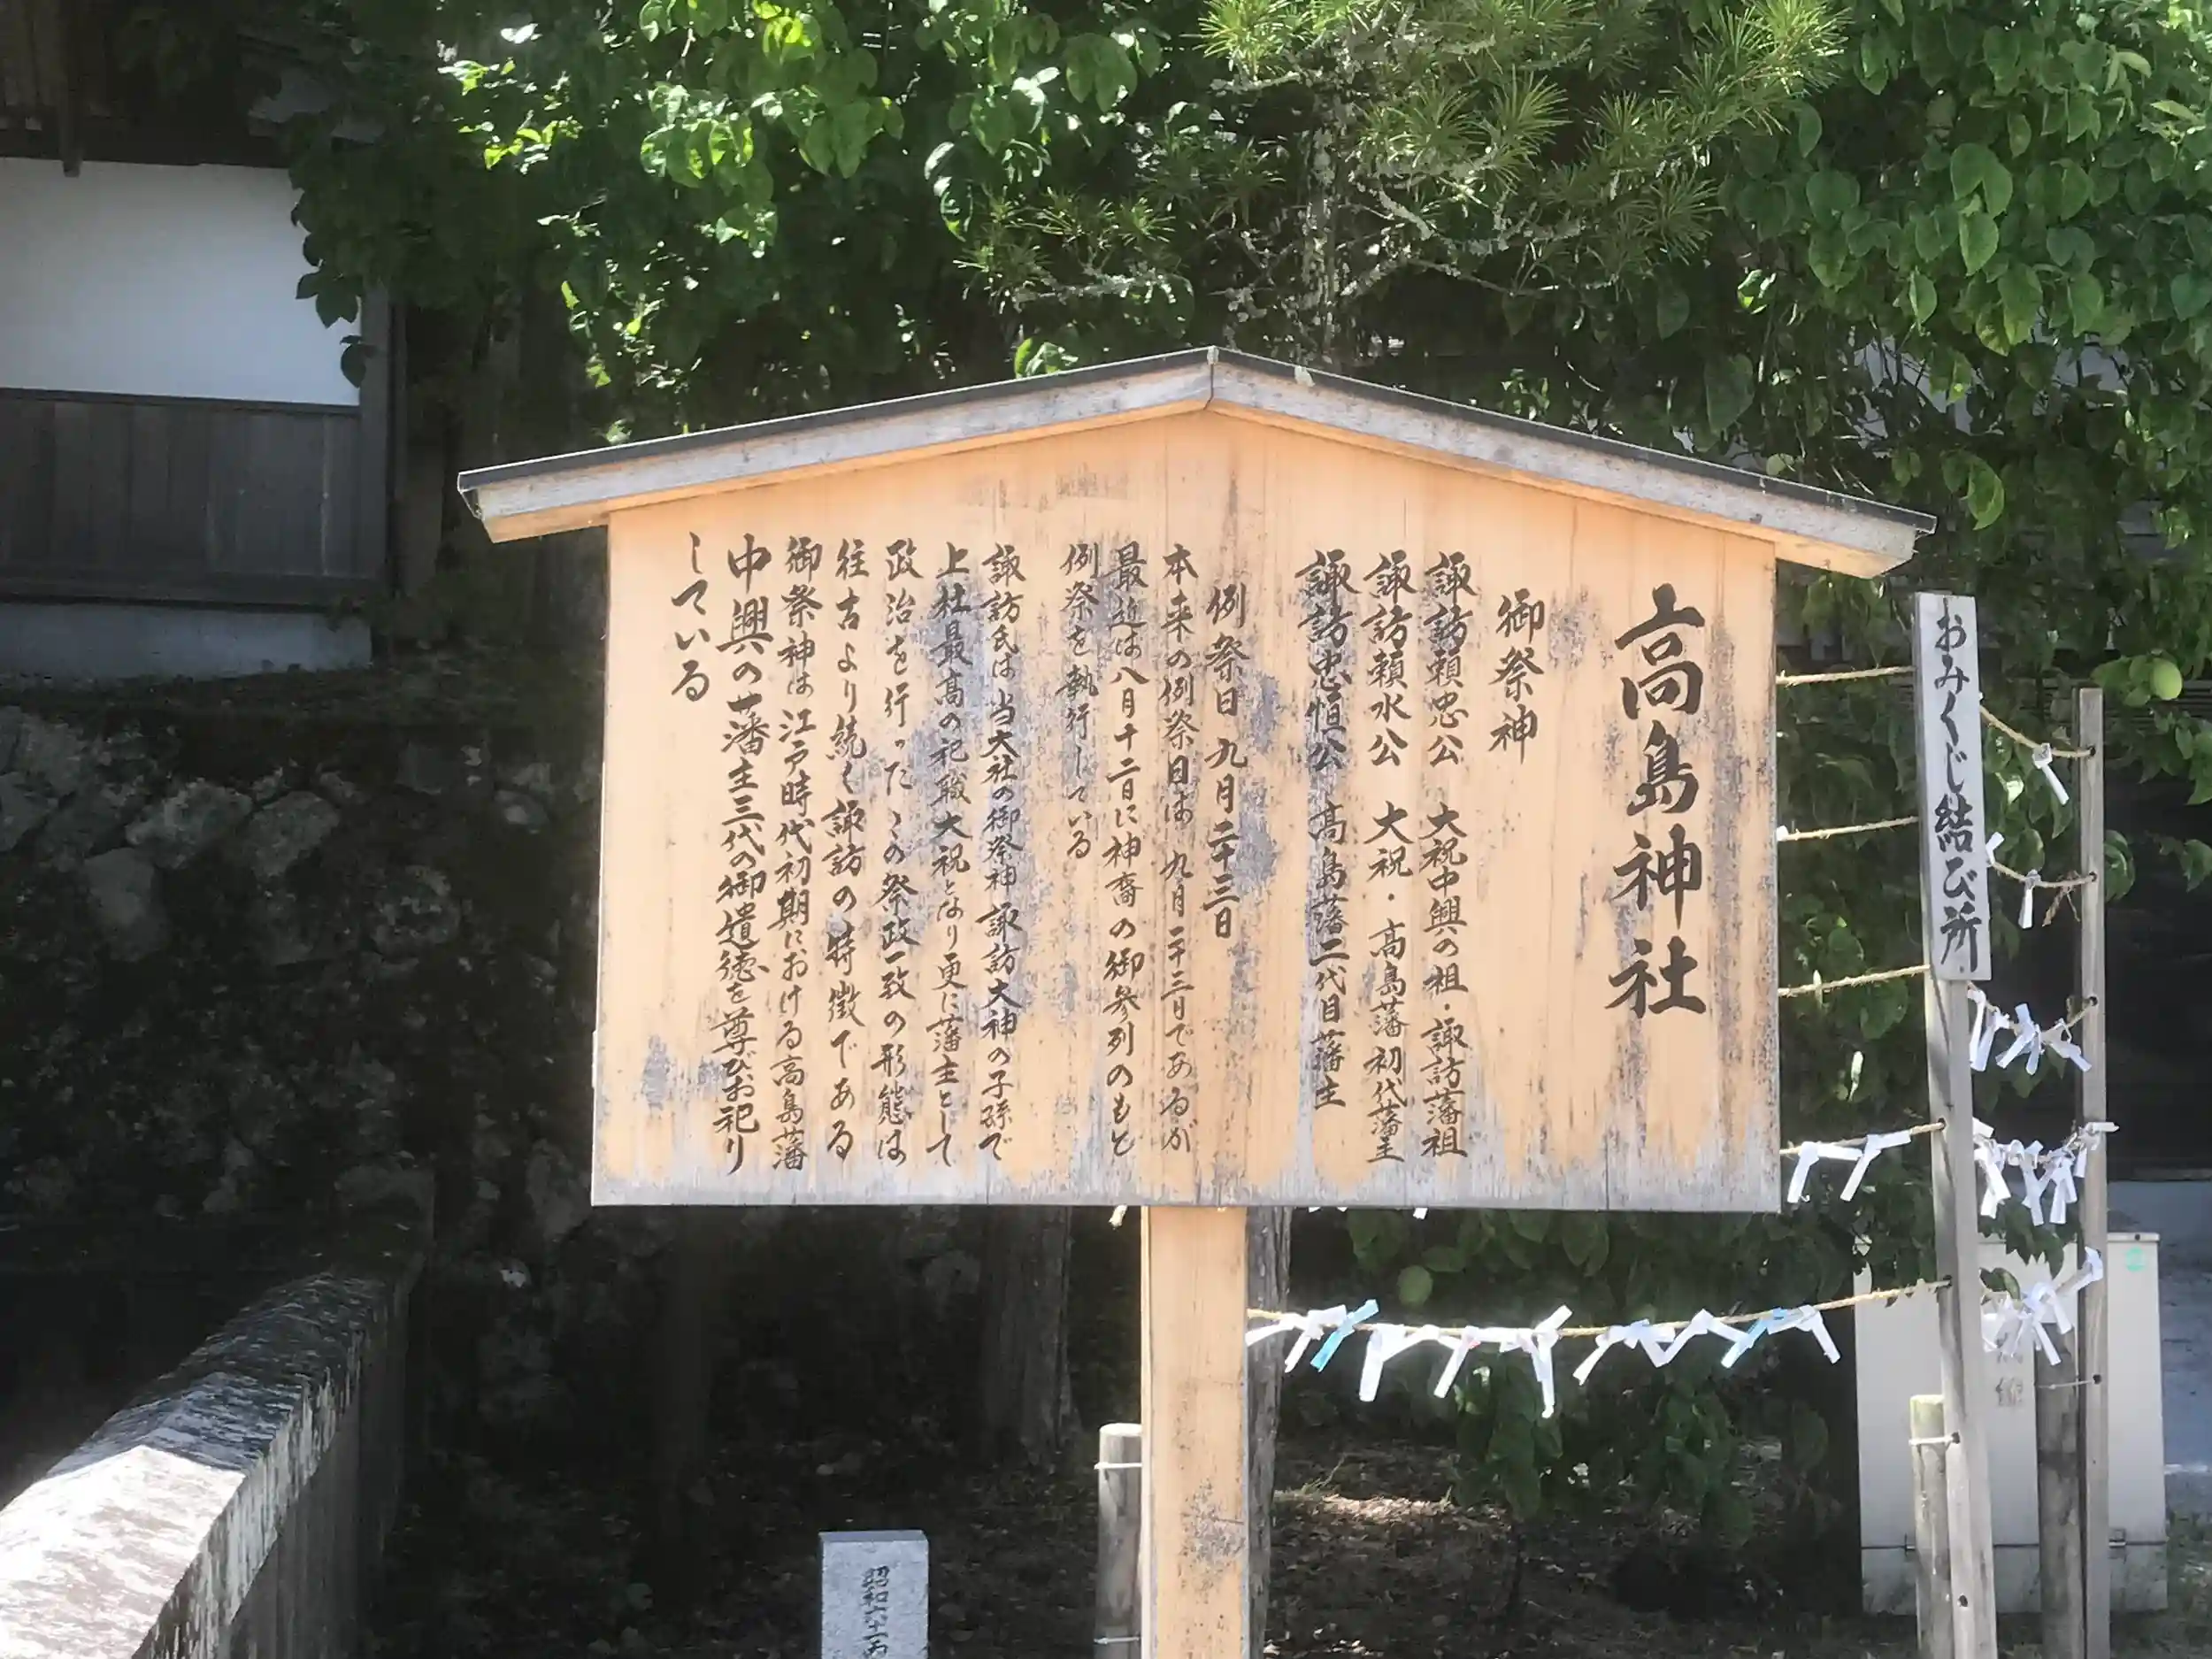 高島神社
御祭神
諏訪頼忠公 大祝中興の祖・諏訪藩祖
諏訪頼水公 大祝・高島藩初代藩主
諏訪忠恒公 高島藩二代目藩主
例祭日 九月二十三日
本来の例祭日は 九月二十三日であるが
最近は八月十二日に神裔の御参列のもと
例祭を執行している
諏訪氏は当大社の御祭神 諏訪大神の子孫で
上社最高の祀職大祝となり更に藩主として
政治を行ったこの祭政一致の形態は
往古より続く諏訪の特徴である
御祭神は江戸時代初期における高島藩
中興の藩主三代の御遺徳を尊びお祀り
している
おみくじ結び所
昭和六十一